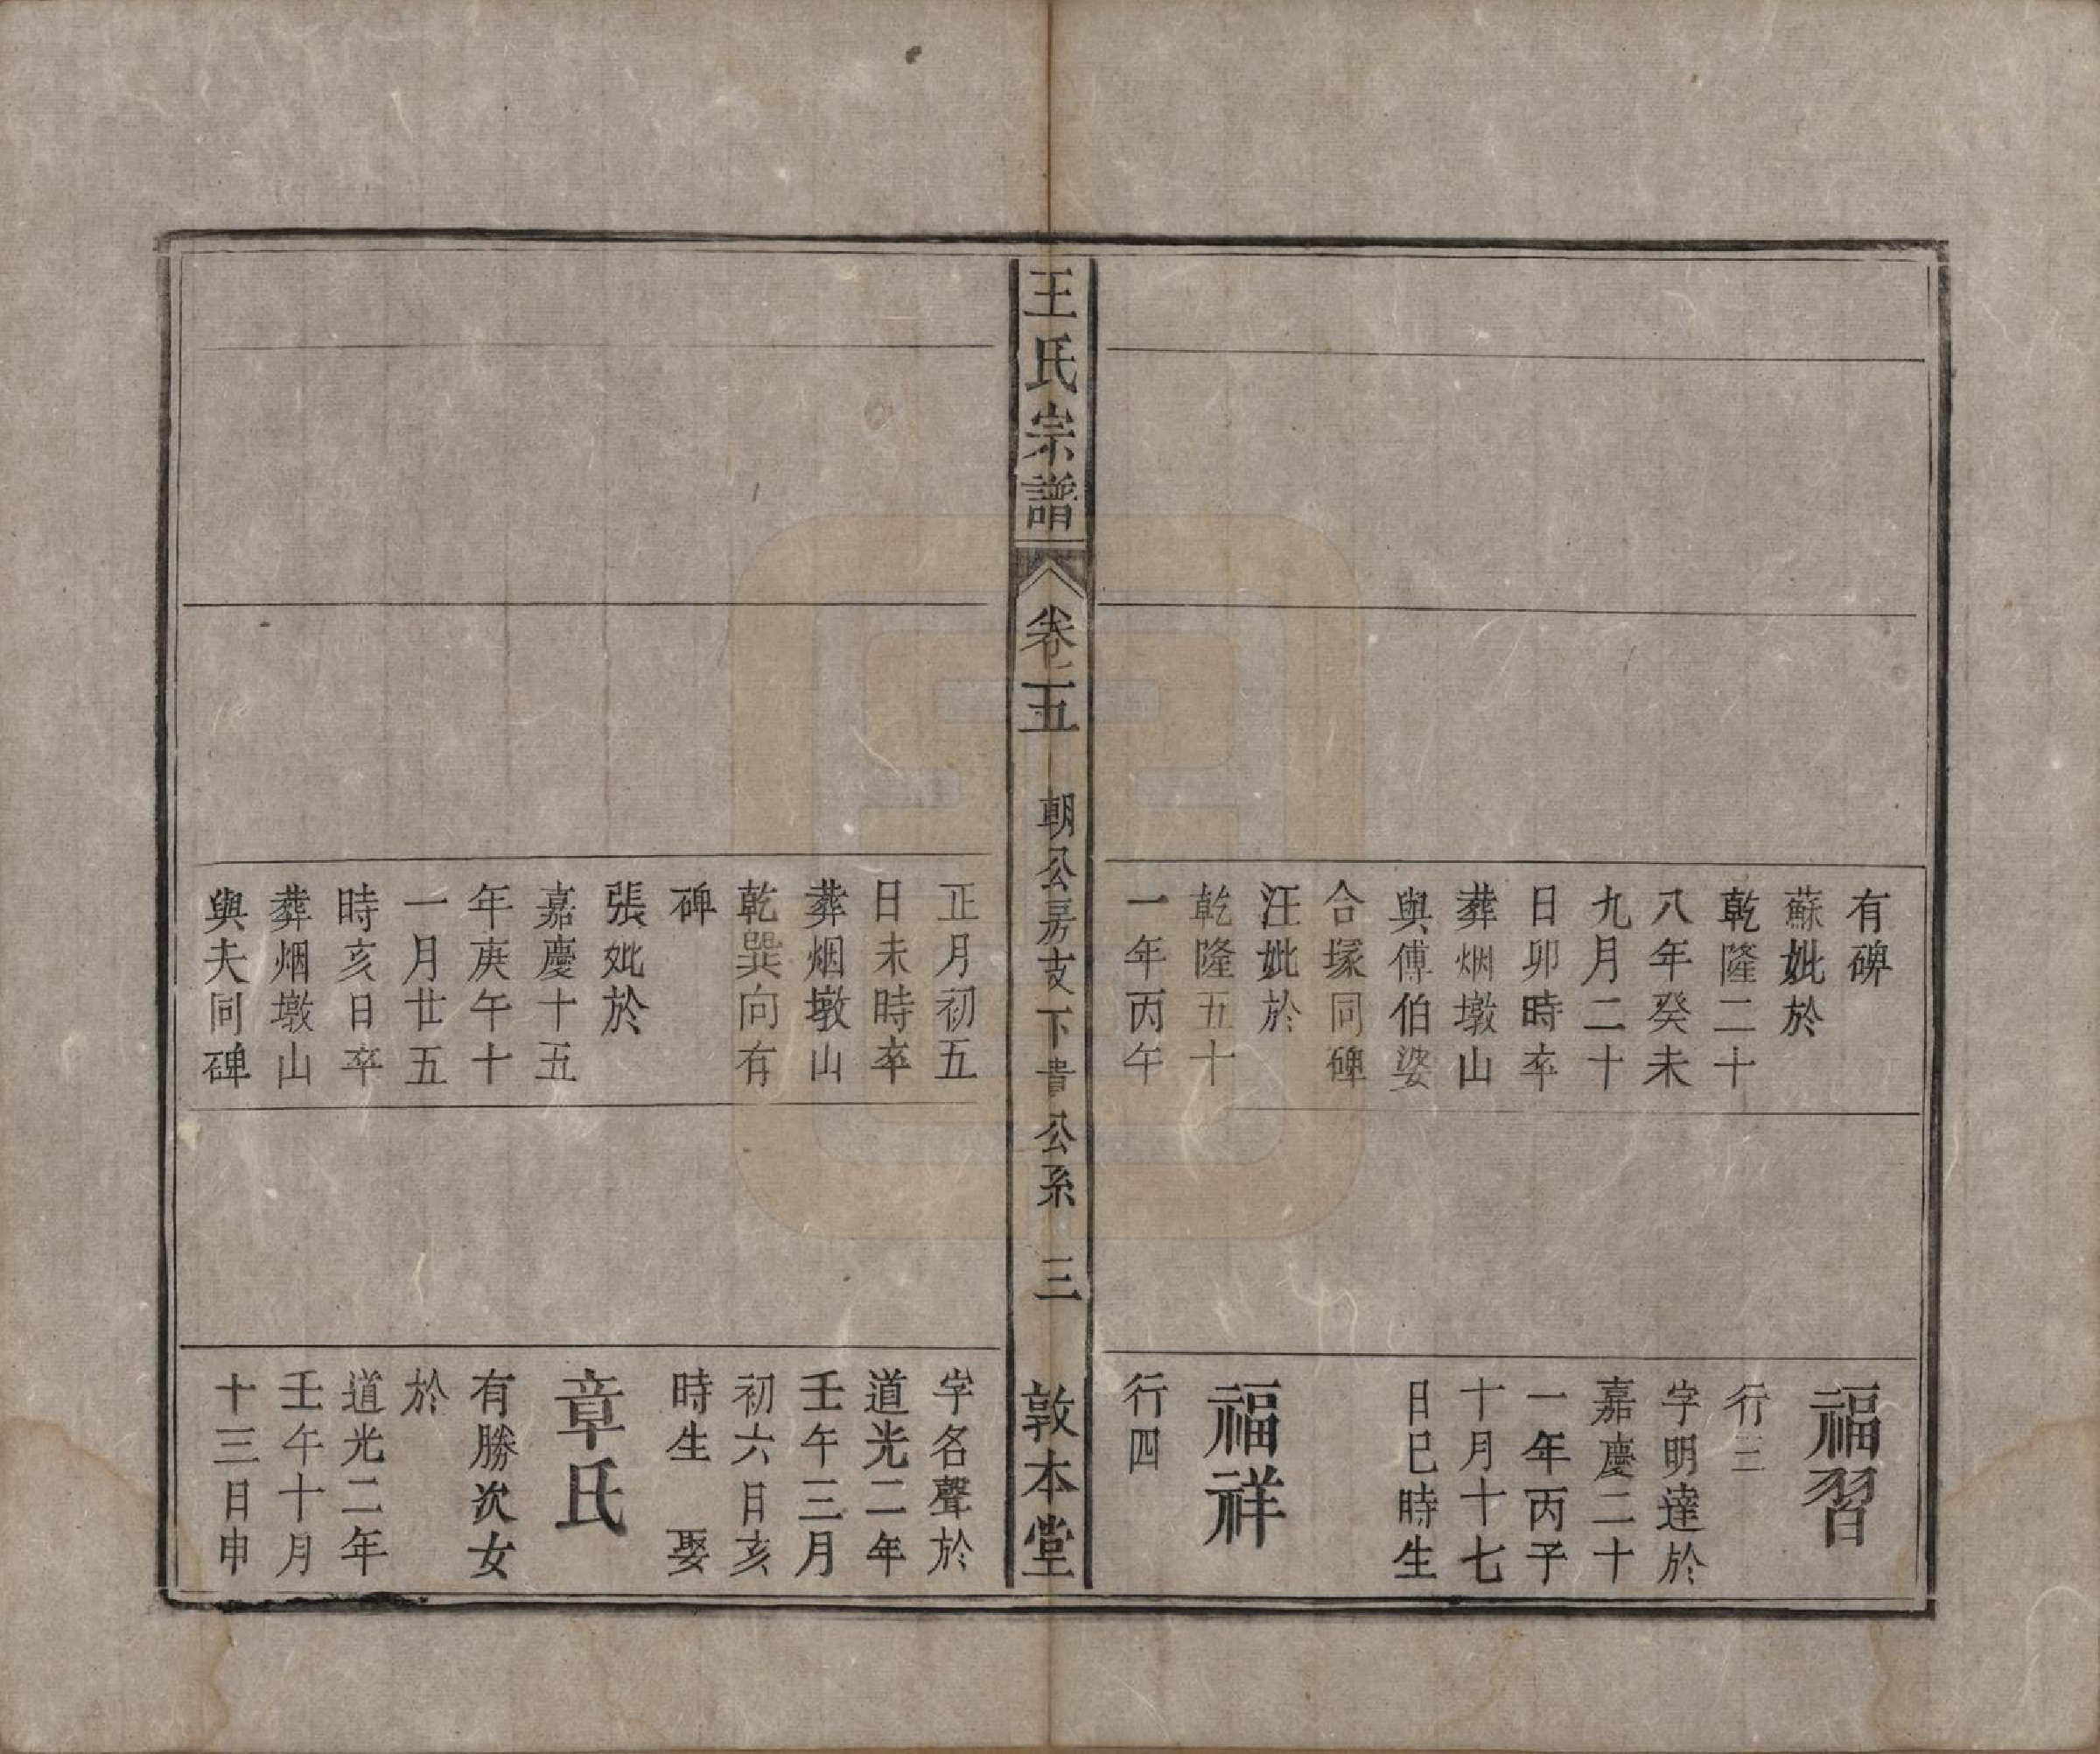 有碑
蘇妣於
乾隆二十
八年癸未
九月二十
日卯時卒
葬烟墩山
與傅伯婆
合塚同碑
汪妣於
乾隆五十
一年丙午
福習
行三
字明達於
嘉慶二十
一年丙子
十月十七
日巳時生
福祥
行四
王氏宗譜
卷二五
朝公房支下貴公系
三
敦本堂
正月初五
日未時卒
葬烟墩山
乾巽向有
碑
張妣於
嘉慶十五
年庚午十
一月廿五
時亥日卒
葬烟墩山
與夫同碑
字名聲於
道光二年
壬午三月
初六日亥
時生 娶
章氏
有勝次女
於
道光二年
壬午十月
十三日申